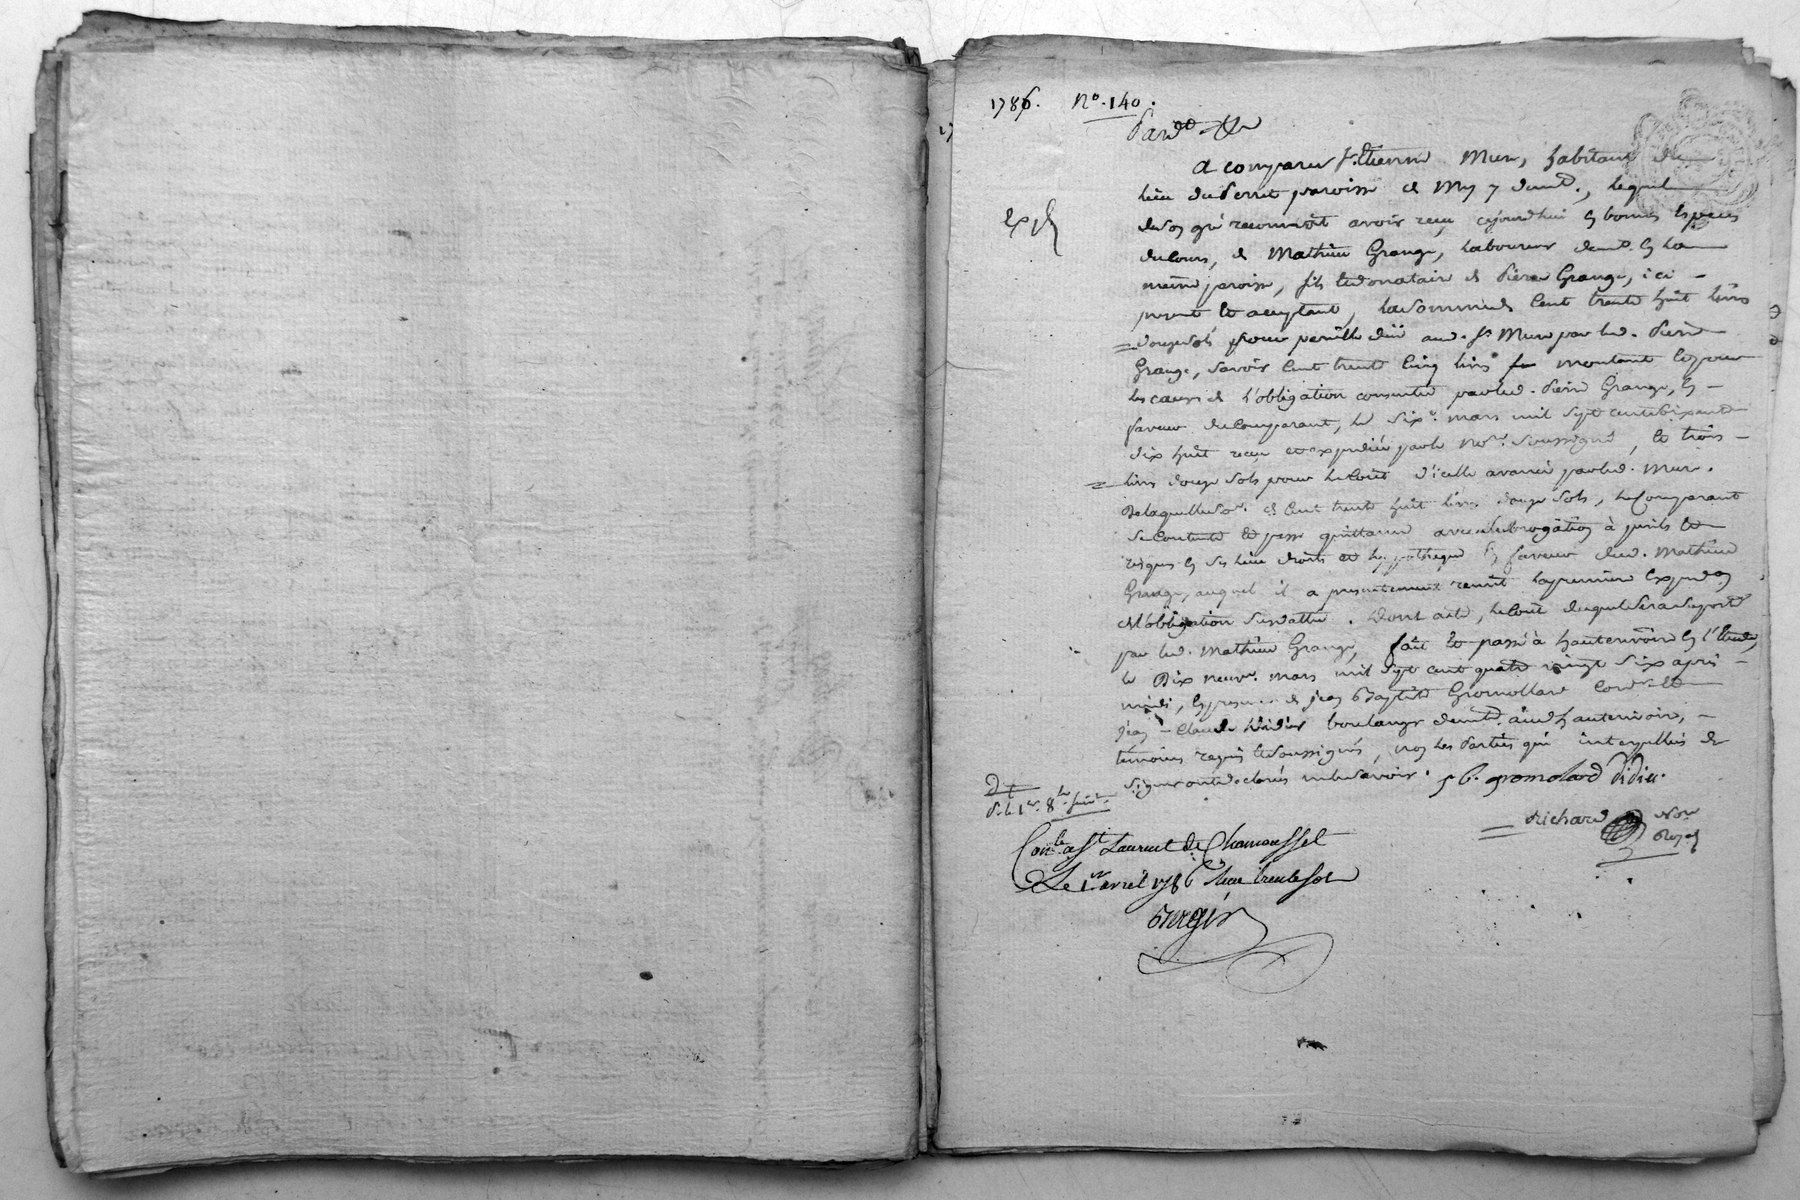 1786. No. 140.
Pard.t
a comparu s.r Etienne Mure, habitant du
lieu du Perret paroisse de My y demt., lequel
de son gré reconnoit avoir recu cejourdhui en bonnes especes
du cours, de Mathieu Grange, laboureur demt. en la
même paroisse, fils et donataire de Pierre Grange, ici
present et acceptant, la somme de Cent trente huit livres
douze sols pour pareille dûë aud. sr Mure par led. Pierre
Grange, savoir Cent trente cinq livres montant
les causes de l'obligation consentie par led. Pierre Grange, en
faveur du Comparant, le six.e mars mil sept cent soixante
dix huit recue et expediée par le No.re soussigné, et trois
livres douze sols pour le Coût d'icelle avancé par led. Mure.
De laquelle so.e de Cent trente huit livres douze sols, le Comparant
se Contente et passe quittance avec subrogation à perils et
risques en ses lieu droits et hypotheque en faveur dud. Mathieu
Grange, auquel il a presentement remit la premiere Expedon
de l'obligation susdattée. Dont acte, le Coût duquel sera suporté
par led. Mathieu Grange, fait et passé à hauterivoire en l'Etude,
le Dix neuv.e mars mil sept cent quatre vingt six après
midi, En presence de jean Baptiste Gromollard Cord.r et
jean Claude Didier boulanger demt. aud. hauterivoire,
témoins requis et soussignés, non les Parties qui interpellées de
signer ont declarés ne le savoir. j b. gromolard Didier.
Richard Nore
Royal
Conlé a St Laurent de Chamousset
Le 1er avril 1786 Reçu trente sols